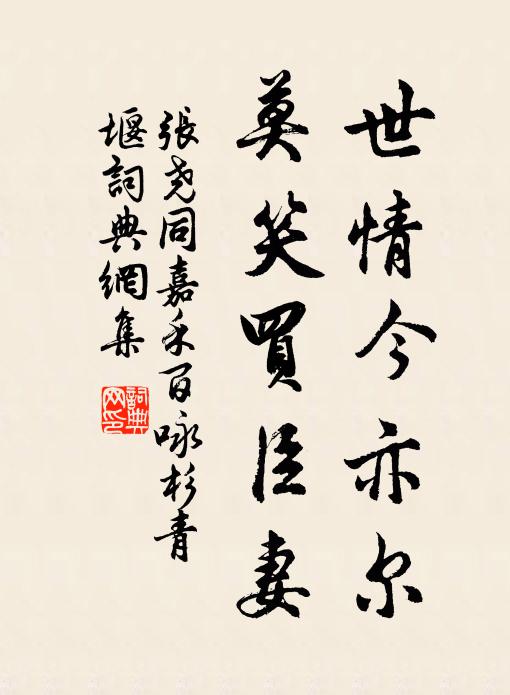 世情今亦尔
莫笑買臣妻
張尧同嘉禾百咏杉青
堰詞典網集
詞典网印